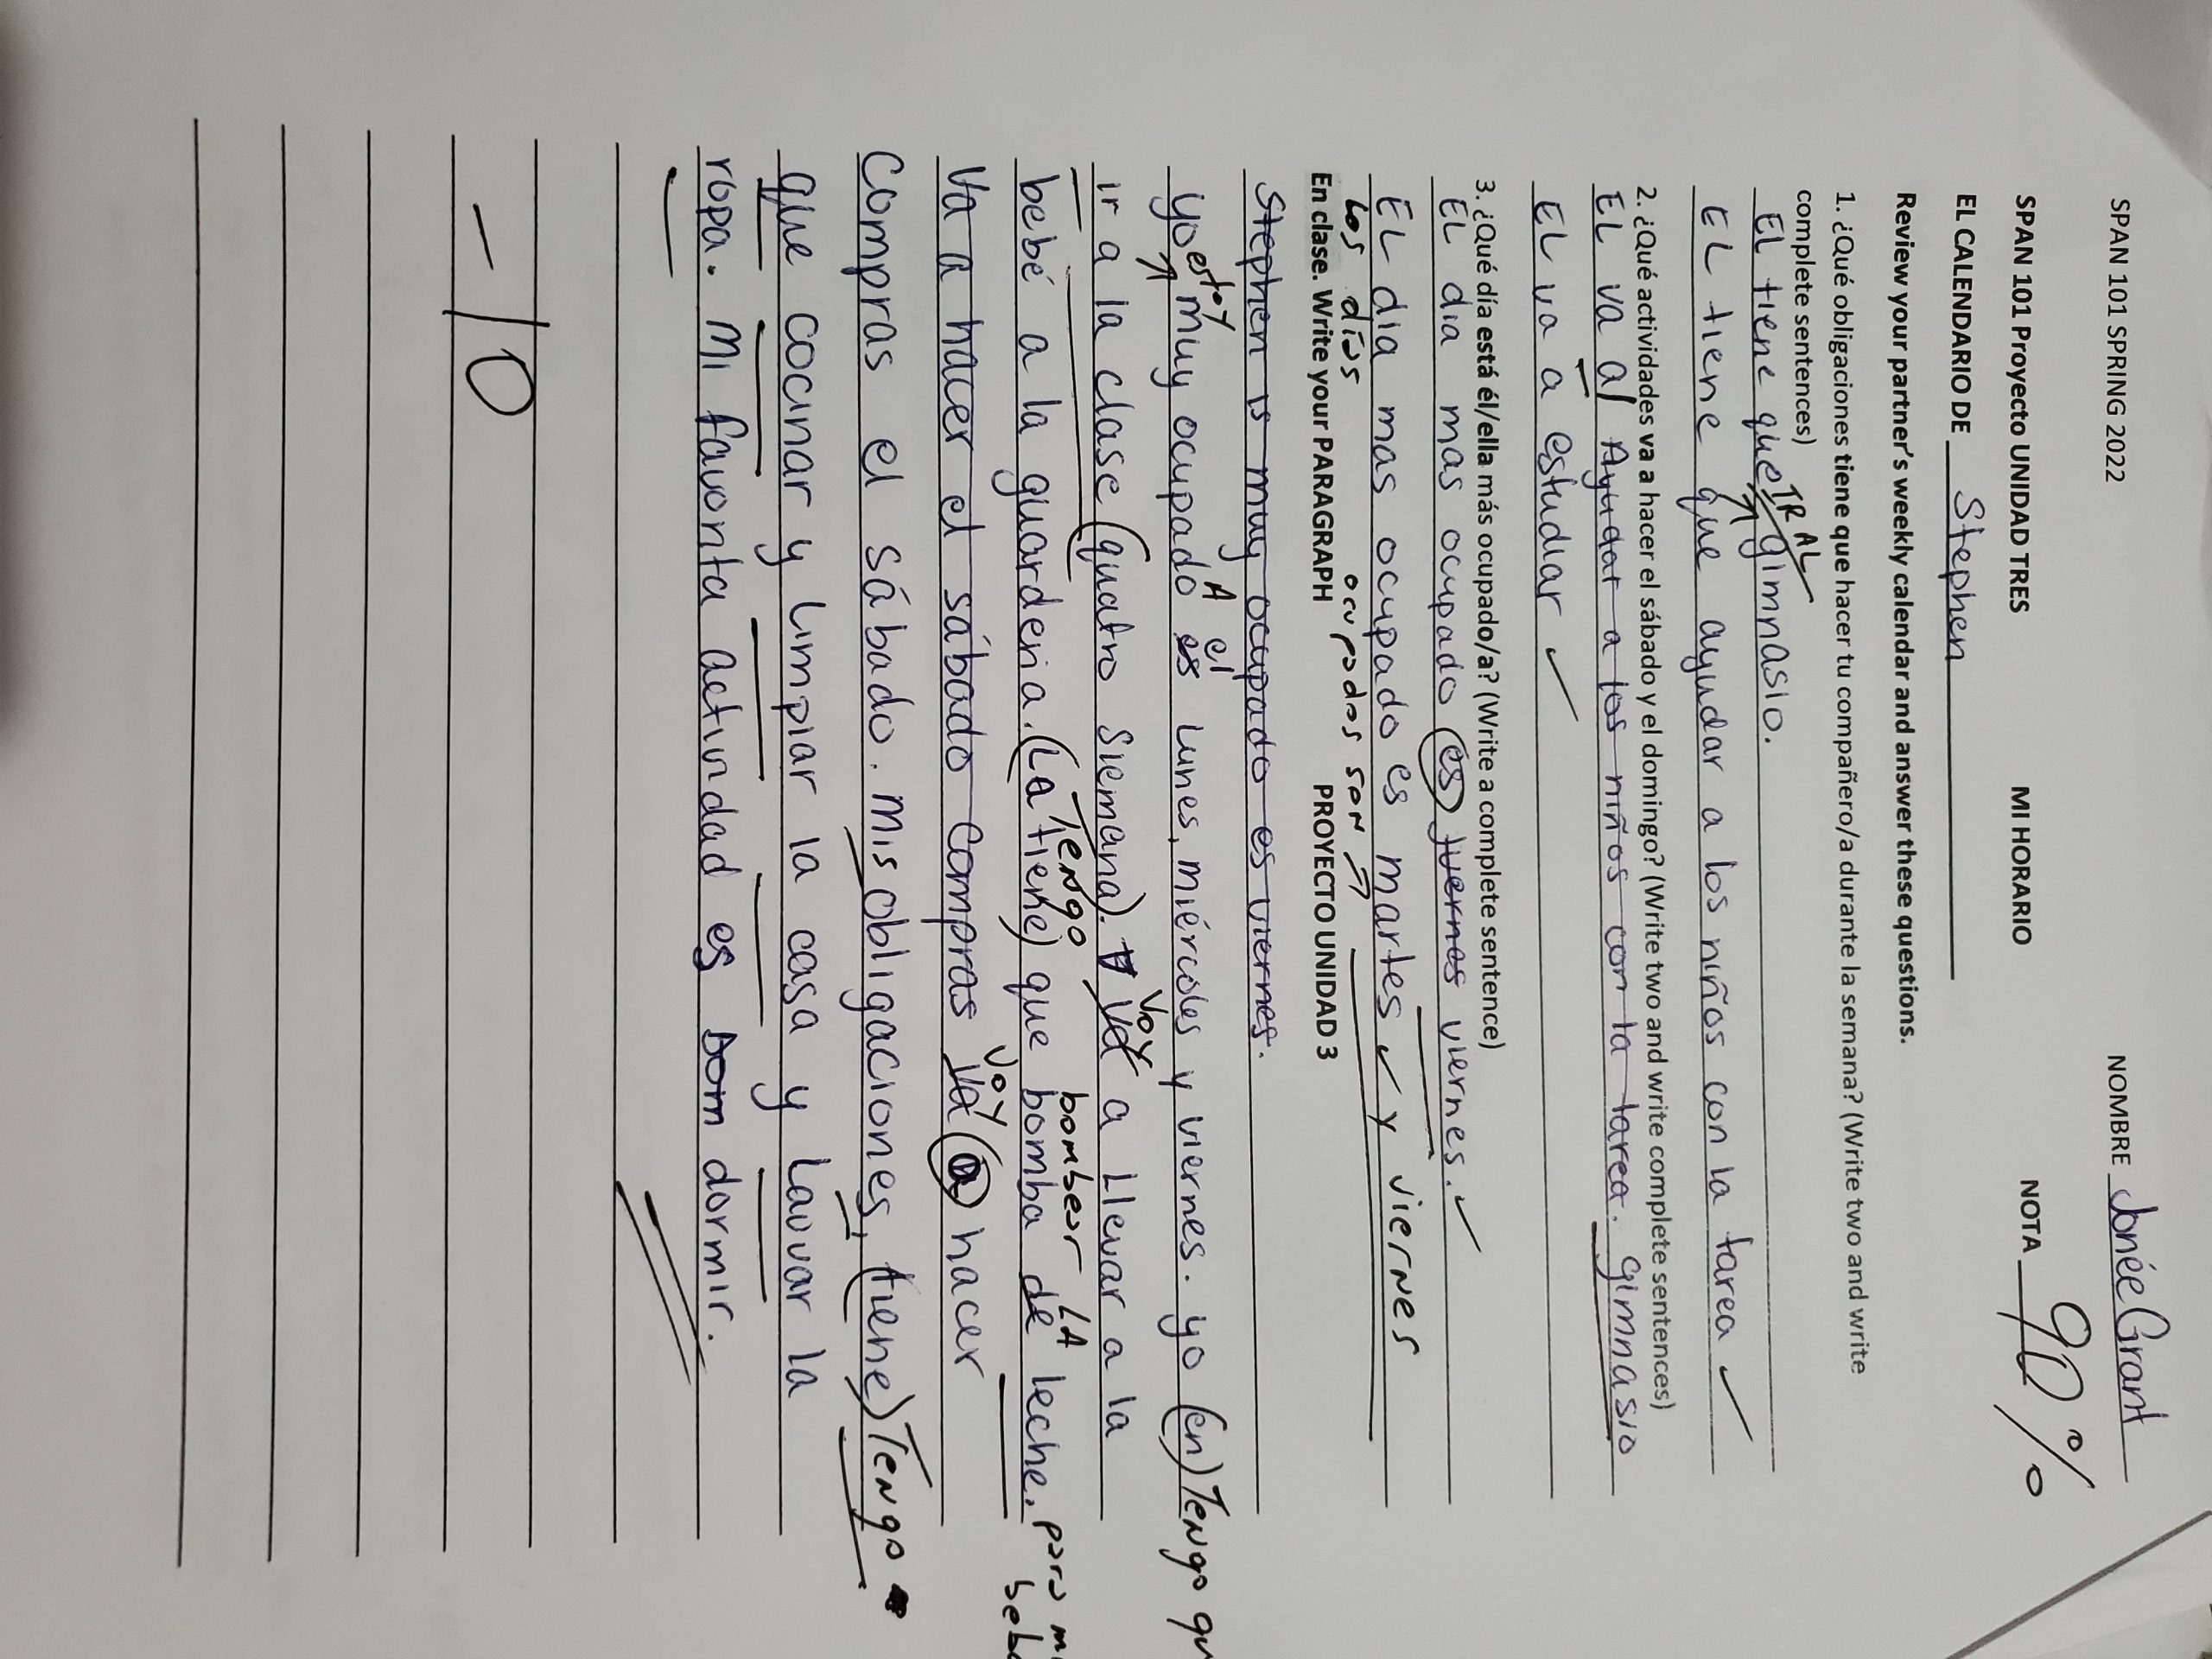 SPAN 101 SPRING 2022 NOMBRE Jonée Grant
SPAN 101 Proyecto UNIDAD TRES MI HORARIO NOTA 90%
EL CALENDARIO DE Stephen
Review your partner's weekly calendar and answer these questions.
1. ¿Qué obligaciones tiene que hacer tu compañero/a durante la semana? (Write two and write
complete sentences)
IR AL
EL tiene que gimnasio.
EL tiene que ayudar a los niños con la tarea ✓
2. ¿Qué actividades va a hacer el sábado y el domingo? (Write two and write complete sentences)
EL va al Ayudar a los niños con la tarea. gimnasio
EL va a estudiar ✓
3. ¿Qué día está él/ella más ocupado/a? (Write a complete sentence)
EL dia mas ocupado (es) juernes viernes. ✓
EL dia mas ocupado es martes ✓ y viernes
Los días ocupados son ⇒
En clase. Write your PARAGRAPH PROYECTO UNIDAD 3
Stephen is muy ocupado es viernes.
estoy A el
yo muy ocupado es lunes, miércoles y viernes. yo (en) Tengo qu
Voy
ir a la clase (quatro siemana). va a Llevar a la
Tengo bombear LA
bebé a la guarderia. (La tiene) que bomba de leche. para m
beb
Voy
va a hacer el sábado compras va (a) hacer
compras el sábado. mis obligaciones, (tiene) Tengo
que cocinar y limpiar la casa y Lavvar la
ropa. Mi favorita actividad es Dom dormir.
-10